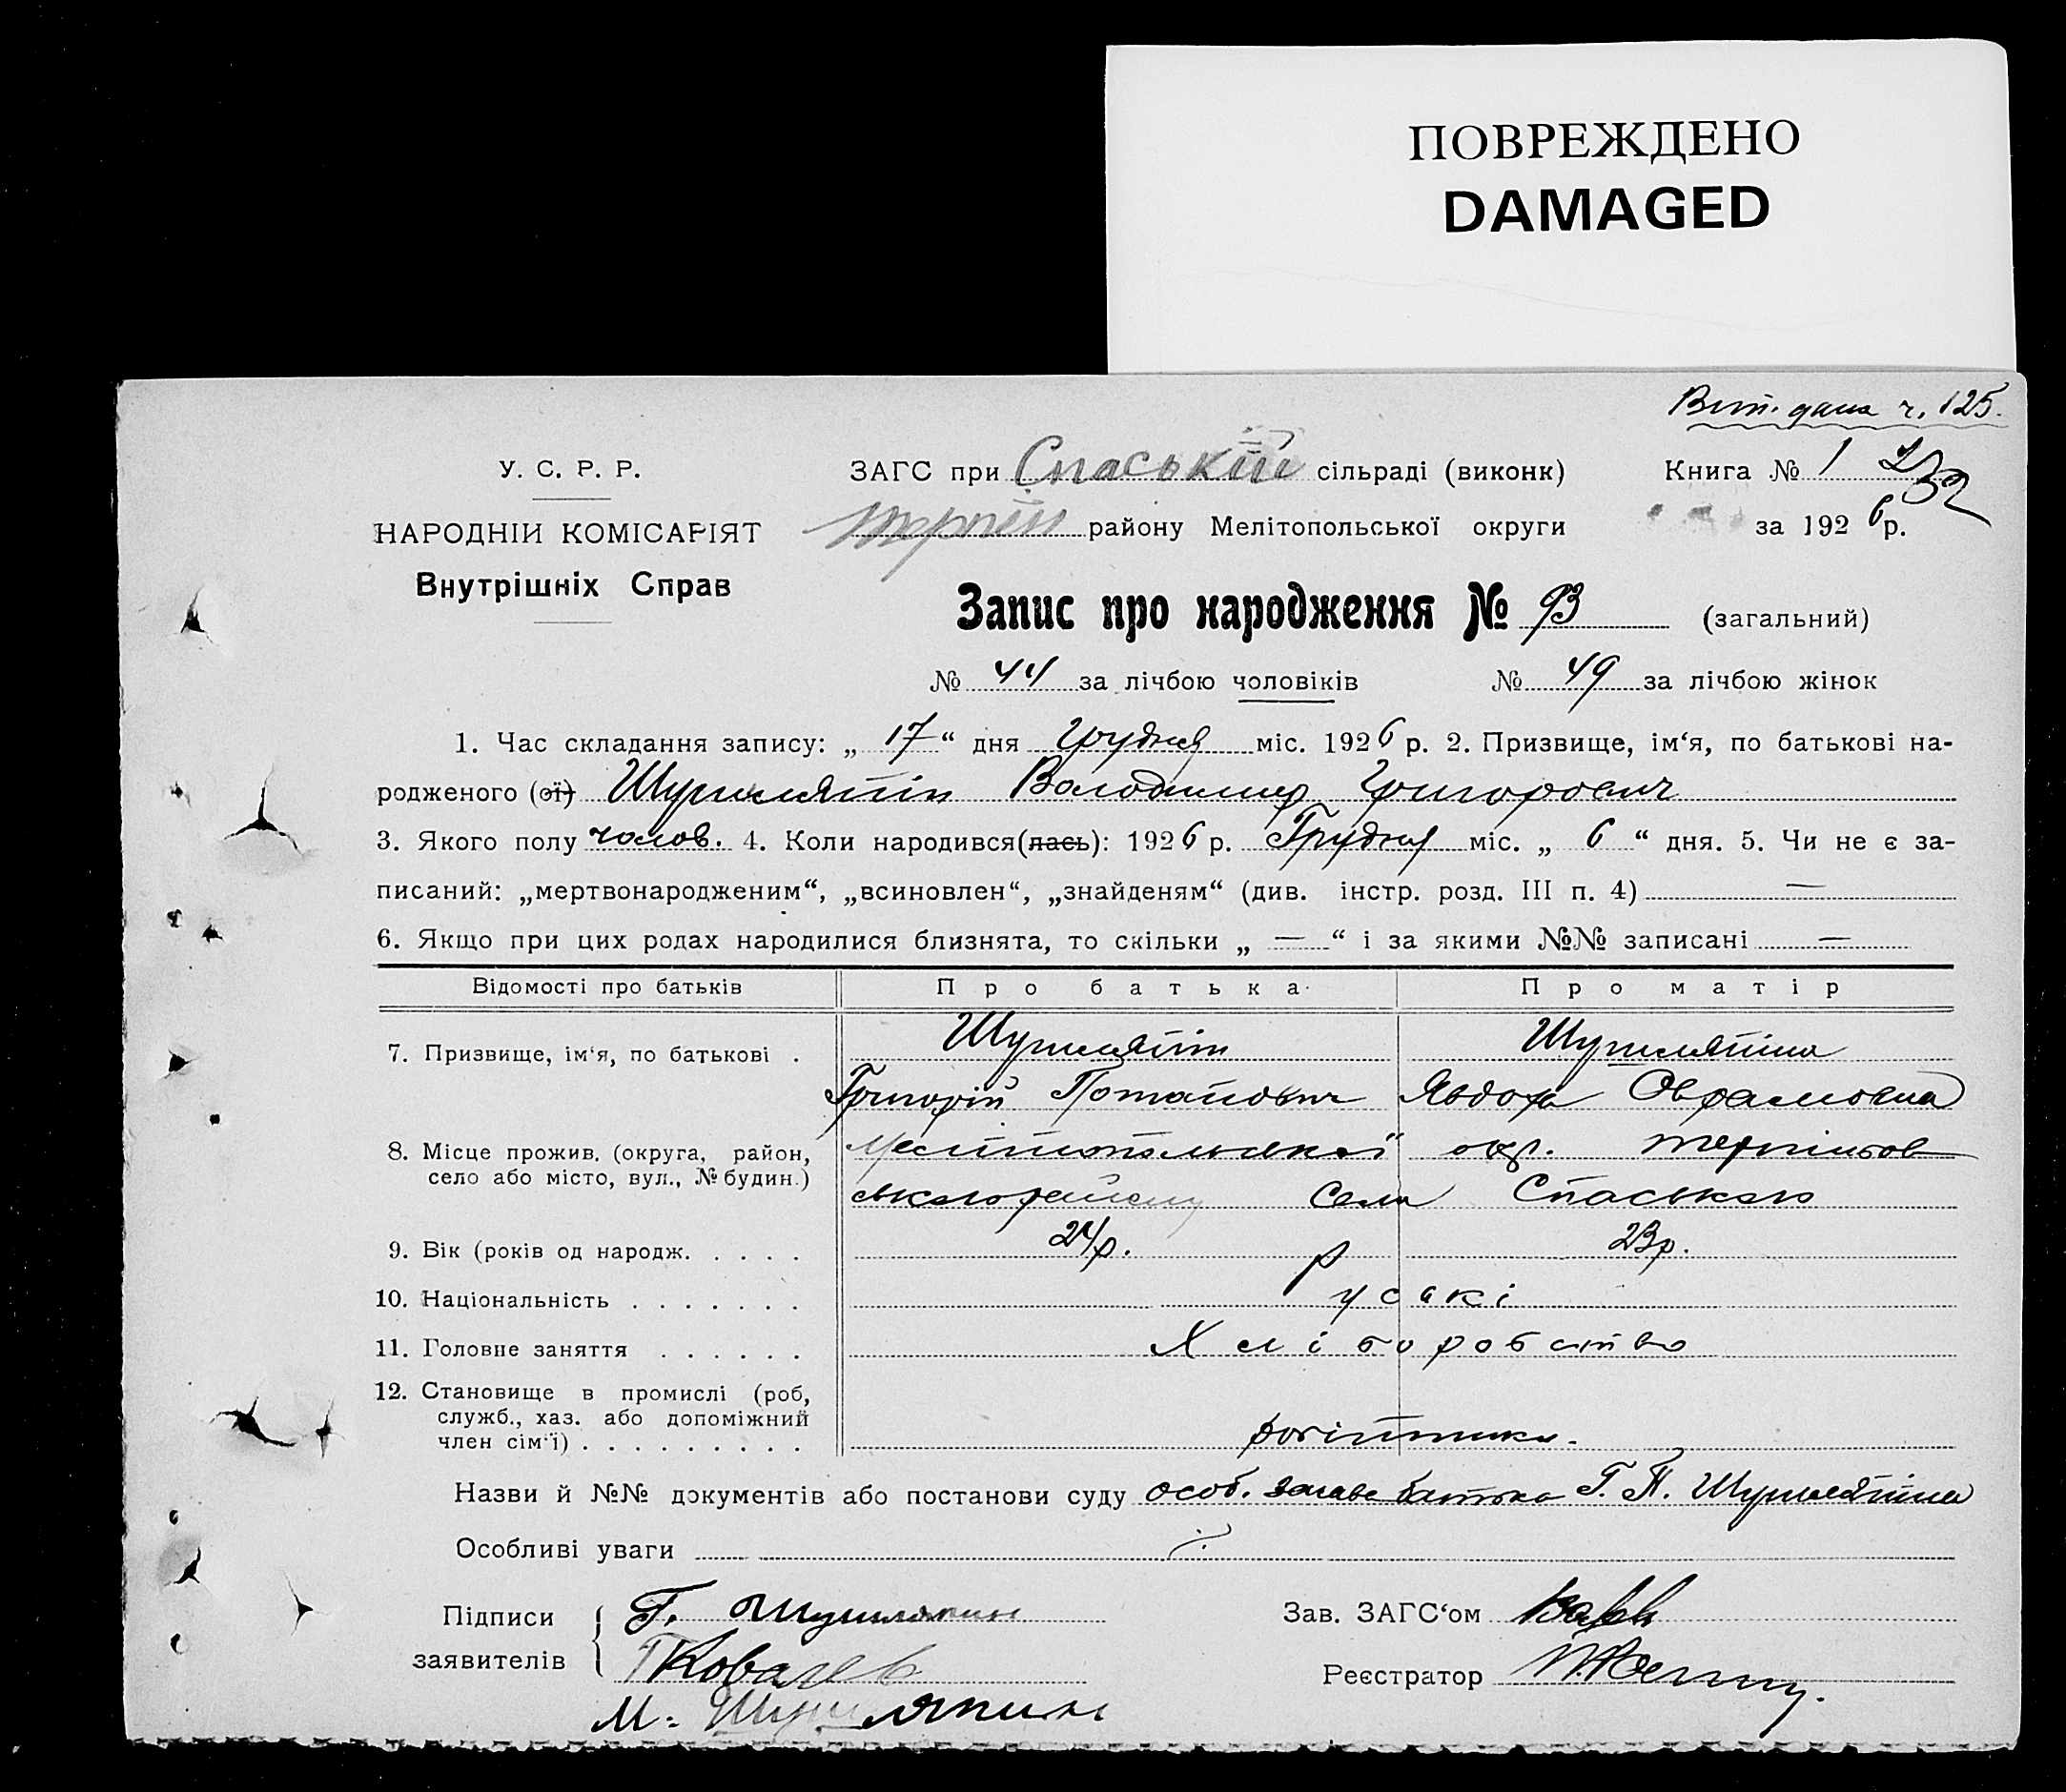 ПОВРЕЖДЕНО
DAMAGED
Вит. дана ч. 125.
У. С. Р. Р.
ЗАГС при Спаській сільраді (виконк) Книга № 1
НАРОДНІИ КОМІСАРІЯТ
району Мелітопольської округи за 1926 р.
Внутрішніх Справ
Запис про народження № 93 (загальний)
№ 44 за лічбою чоловіків № 49 за лічбою жінок
1. Час складання запису: „ 17 “ дня Грудня міс. 1926 р. 2. Призвище, ім‘я, по батькові на-
родженого (ої) Шушляпін Володимир Григорович
3. Якого полу чолов. 4. Коли народився(лась): 1926 р. Грудня міс. „ 6 “ дня. 5. Чи не є за-
писаний: „мертвонародженим“, „всиновлен“, „знайденям“ (див. інстр. розд. III п. 4) —
6. Якщо при цих родах народилися близнята, то скільки „ — “ і за якими №№ записані —
Відомості про батьків Про батька Про матір
7. Призвище, ім‘я, по батькові . Шушляпін Шушляпіна
Григорій Потапович Явдоха Оврамовна
8. Місце прожив. (округа, район, Мелітопольської окр. Терпіньов
село або місто, вул., № будин.) ського району Села Спаського
9. Вік (років од народж. . . . . 24 р. 23 р.
10. Національність . . . . . . . Руські
11. Головне заняття . . . . . . Хліборобство
12. Становище в промислі (роб,
служб., хаз. або допоміжний
член сім‘ї) . . . . . . . . .
Назви й №№ документів або постанови суду особ. заява батька Г. П. Шушляпіна
Особливі уваги
Підписи Г. Шушляпин Зав. ЗАГС‘ом
заявителів Ковалев Реєстратор
М. Шушляпин